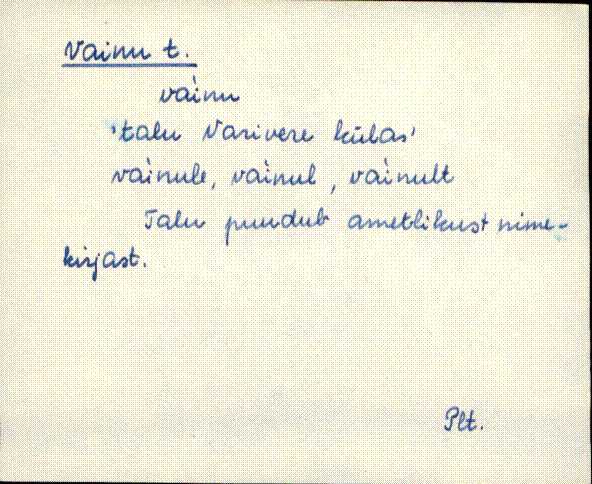 Vainu t.
vàinu
'talu Varivere külas'
vàinule, vàinul, vàinult
Talu puudub ametlikust nime-
kirjast.
Plt.